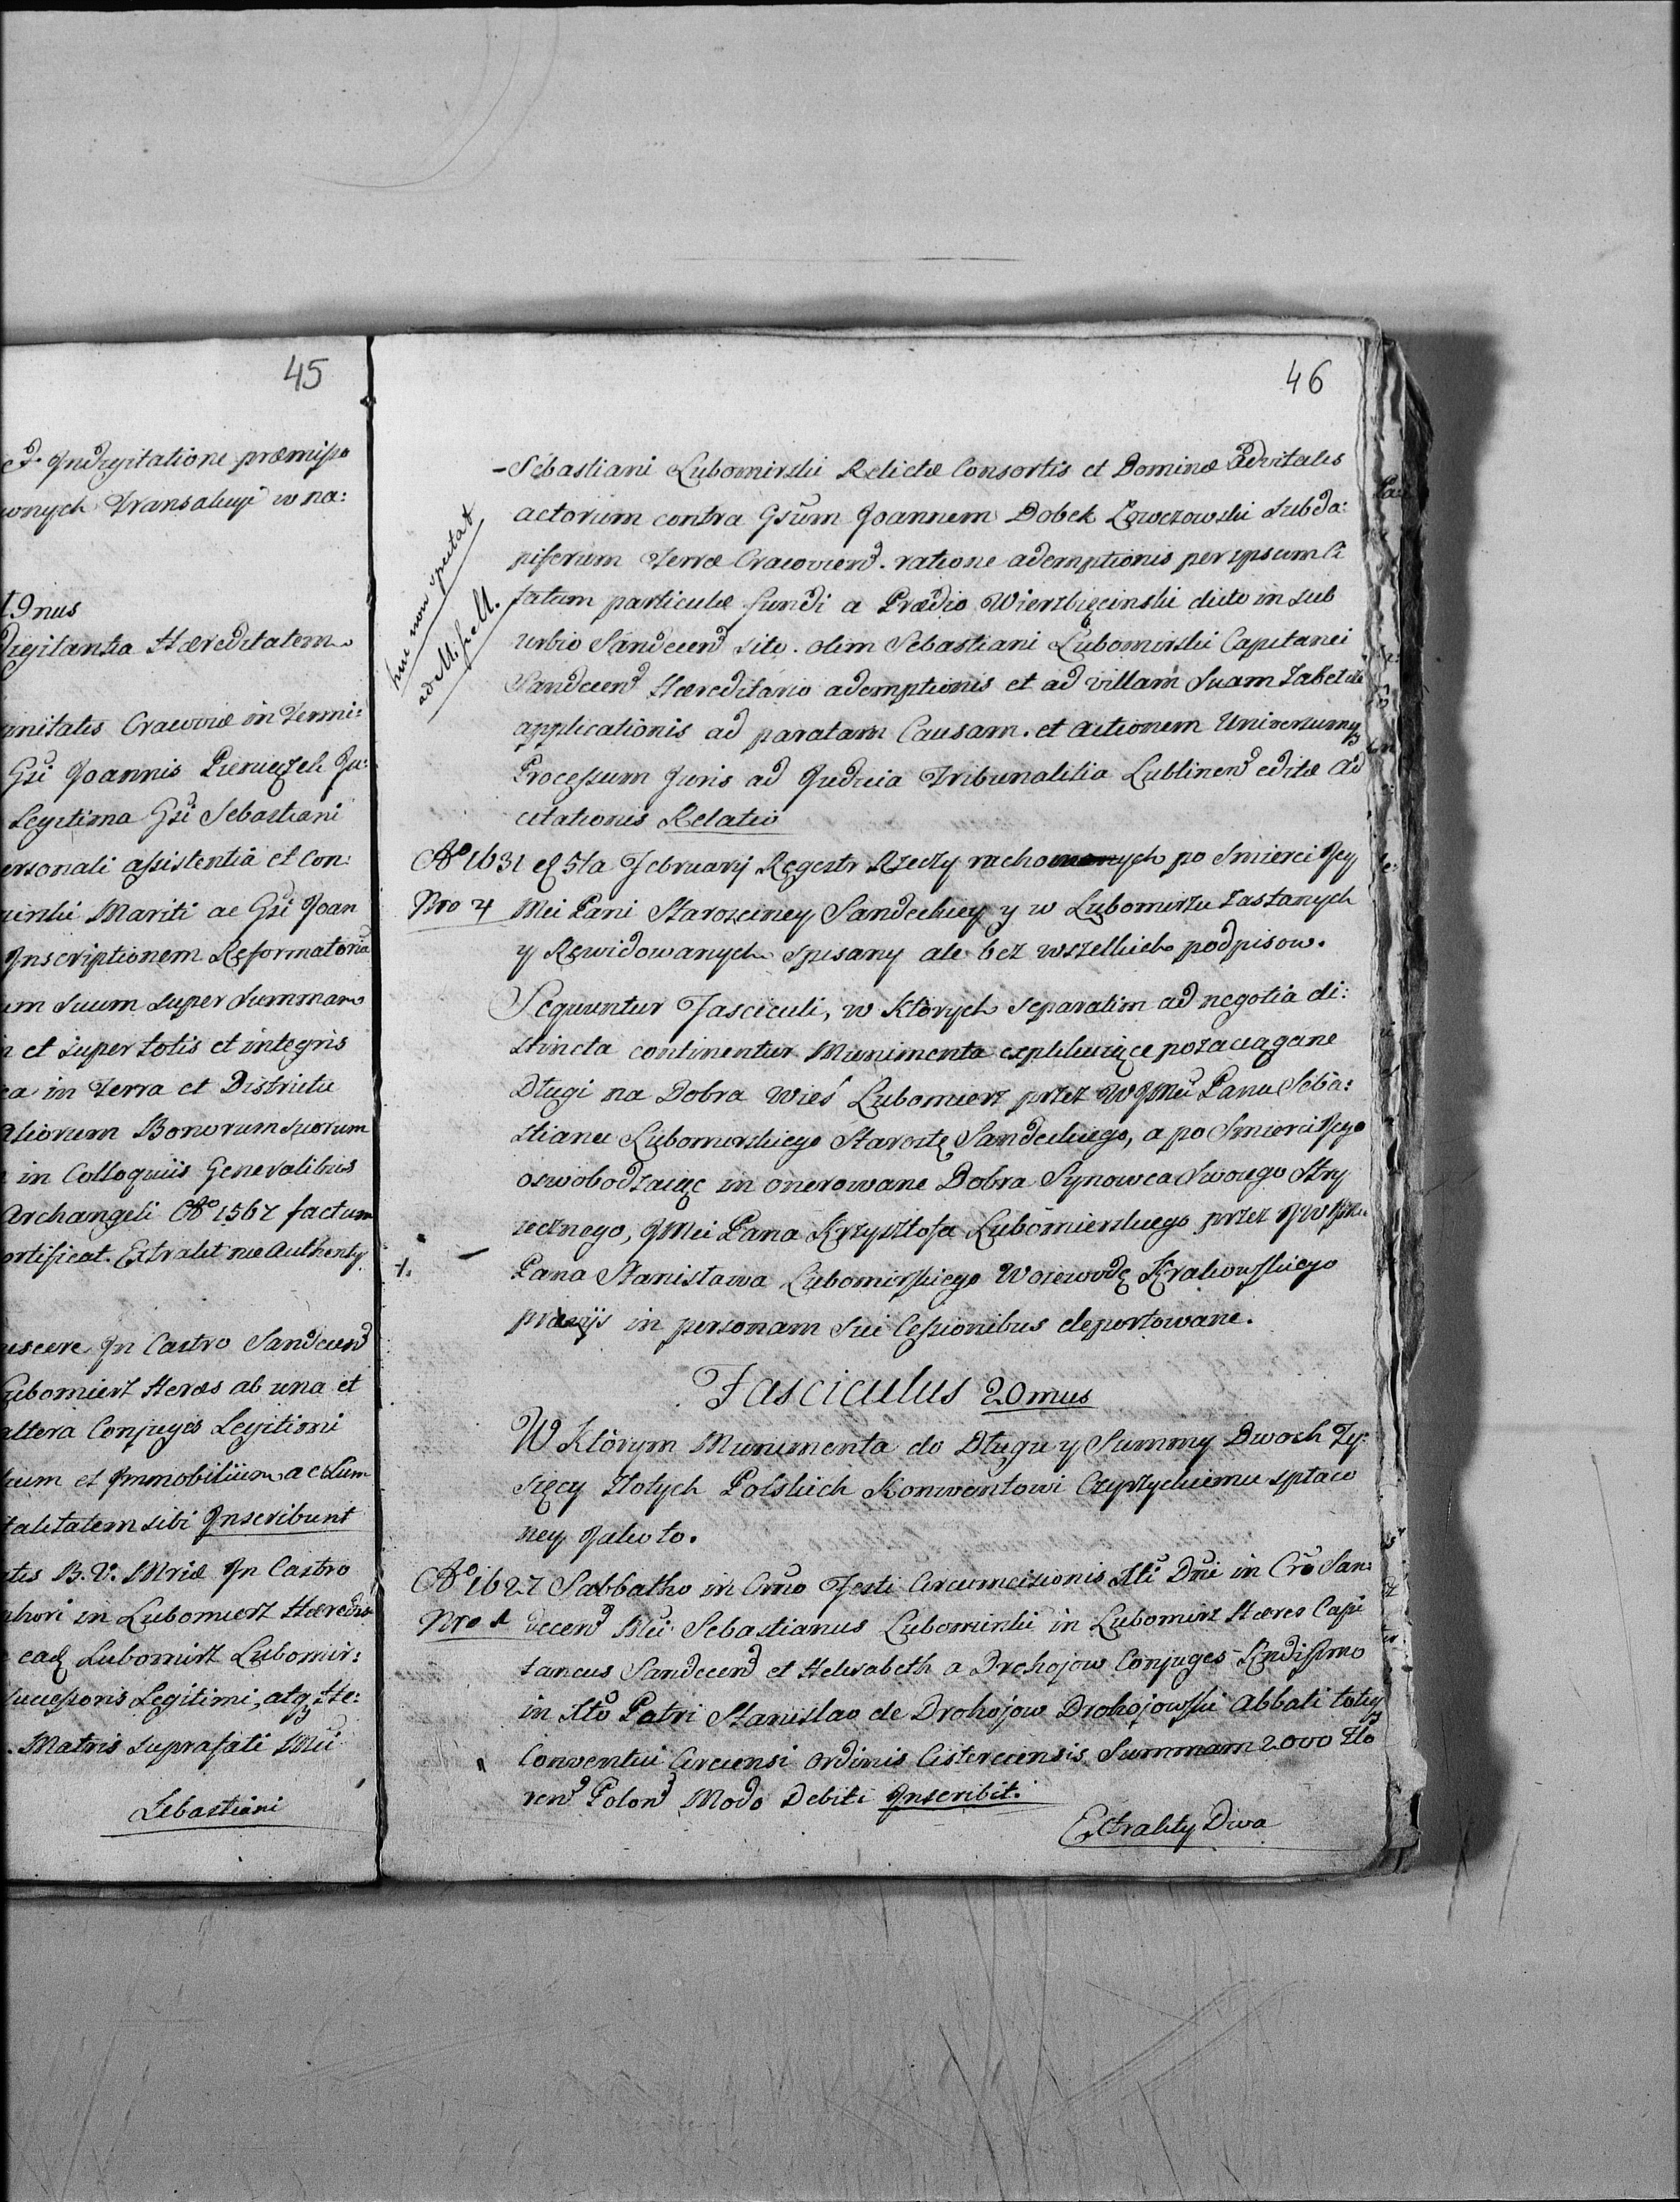 45
præmisso
Transakcyi w na:
19nus
Hæreditatem
Cracoviæ in Termi:
Gsi Joannis Pieniążek Ju:
Legitima Gsi Sebastiani
personali assistentia et Con:
Mariti ac Gsi Joan
Inscriptionem Reformatoria
suum super summam
et super totis et integris
in Terra et Districtu
Bonorum suorum
in Colloquiis Generalibus
Archangeli Ao 1567 factum
Extrakt nie Authenty
In Castro Sandecen
Lubomierz Heres ab una et
altera Conjuges Legitimi
et Immobilium ac Lum
sibi Inscribunt
B. V. Mriæ In Castro
in Lubomierz Hæredis
eadq Lubomirz Lubomir:
Successoris Legitimi, atqz He:
Matris suprafati Mci
Sebastiani
46
huc non spectat
ad M.
- Sebastiani Lubomirski Relictæ Consortis et Dominæ advitales
actorum contra Gsum Joannem Dobek Łowczowski Subda:
piferum Terræ Cracovien. ratione ademptionis per ipsum Ci
tatum particulæ fundi a Prædio Wierzbięcinski dicto in sub
urbio Sandecen sito. olim Sebastiani Lubomirski Capitanei
Sandecen Hæreditario ademptionis et ad villam suam Zabełcze
applicationis ad paratam Causam. et actionem Universumqz
Processum Juris ad Judicia Tribunalitia Lublinen editæ ad
citationis Relatio
Ao 1631 5ta February Regestr Rzeczy ruchomych po Smierci Jey
Nro 4 Mci Pani Starosciney Sandeckiey y w Lubomirzu zastanych
y Rewidowanych spisany ale bez wszelkich podpisow.
Sequuntur Fasciculi, w Których separatim ad negotia di:
stincta continentur Munimenta explikuiące pozaciągane
Długi na Dobra wieś Lubomierz przez WJMci Pana Seba:
stiana Lubomirskiego Starostę Sandeckiego, a po Smierci Jego
oswobodzaiąc in onerowane Dobra Synowca swoiego Stry
iecznego, JMci Pana Krzysztofa Lubomierskiego przez JW JPa
Pana Stanisława Lubomirskiego Woiewodę Krakowskiego
præviis in personam sui Cessionibus deportowane.
Fasciculus 20mus
W Którym Munimenta do Długu y Summy Dwoch Ty:
sięcy Złotych Polskich Konwentowi Czyrzyckiemu spłaco
ney Jako to.
Ao 1627 Sabbatho in Crno Festi Circumcisionis Xti Dni in Cro San:
Nro 1 decen Mci Sebastianus Lubomirski in Lubomirz Hæres Capi
taneus Sandecen et Helisabeth a Drohojow Conjuges Rndissimo
in Xto Patri Stanislao de Drohojow Drohojowski Abbati totiqz
Conventui Circensi Ordinis Cisterciensis Summam 2000 Flo
ren Polon Modo Debiti Inscribit.
Extrakty Dwa